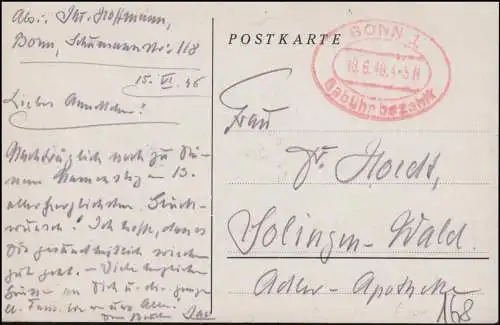 Abs.: Jh. Hoffmann,
Bonn, Schumannstr. 118
15. VI. 46
Liebes Annchen!
Nachträglich noch zu Dei-
nem Namenstag – 13.
allerherzlichsten Glück-
wunsch! Ich hoffe, dass es
Dir gesundheitlich wieder
gut geht. – Viele herzliche
Grüsse an Dich u. die ganze
Dein Bruder
POSTKARTE
BONN 1
18.6.46.4-5 N
Gebühr bezahlt
Frau
Dr. Hordt,
Solingen-Wald
Adler-Apotheke
168